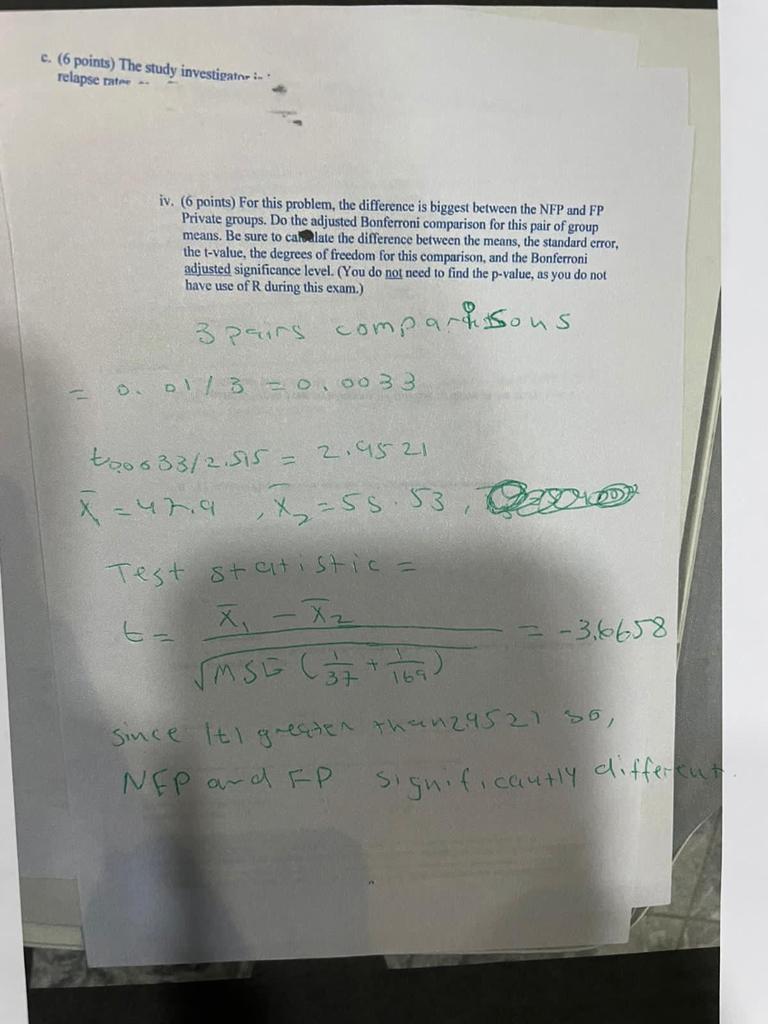 c. (6 points) The study investigator
relapse rates
iv. (6 points) For this problem, the difference is biggest between the NFP and FP
Private groups. Do the adjusted Bonferroni comparison for this pair of group
means. Be sure to calculate the difference between the means, the standard error,
the t-value, the degrees of freedom for this comparison, and the Bonferroni
adjusted significance level. (You do not need to find the p-value, as you do not
have use of R during this exam.)
3 pairs comparisons
= 0.01/3 = 0.0033
t0.0033/2.515 = 2.9521
X̄₁ = 47.9, X̄₂ = 55.53,
Test statistic =
t = X̄₁ - X̄₂ / √MSE (1/37 + 1/169) = -3.6658
since |t| greater than 2.9521 so,
NFP and FP significantly different.